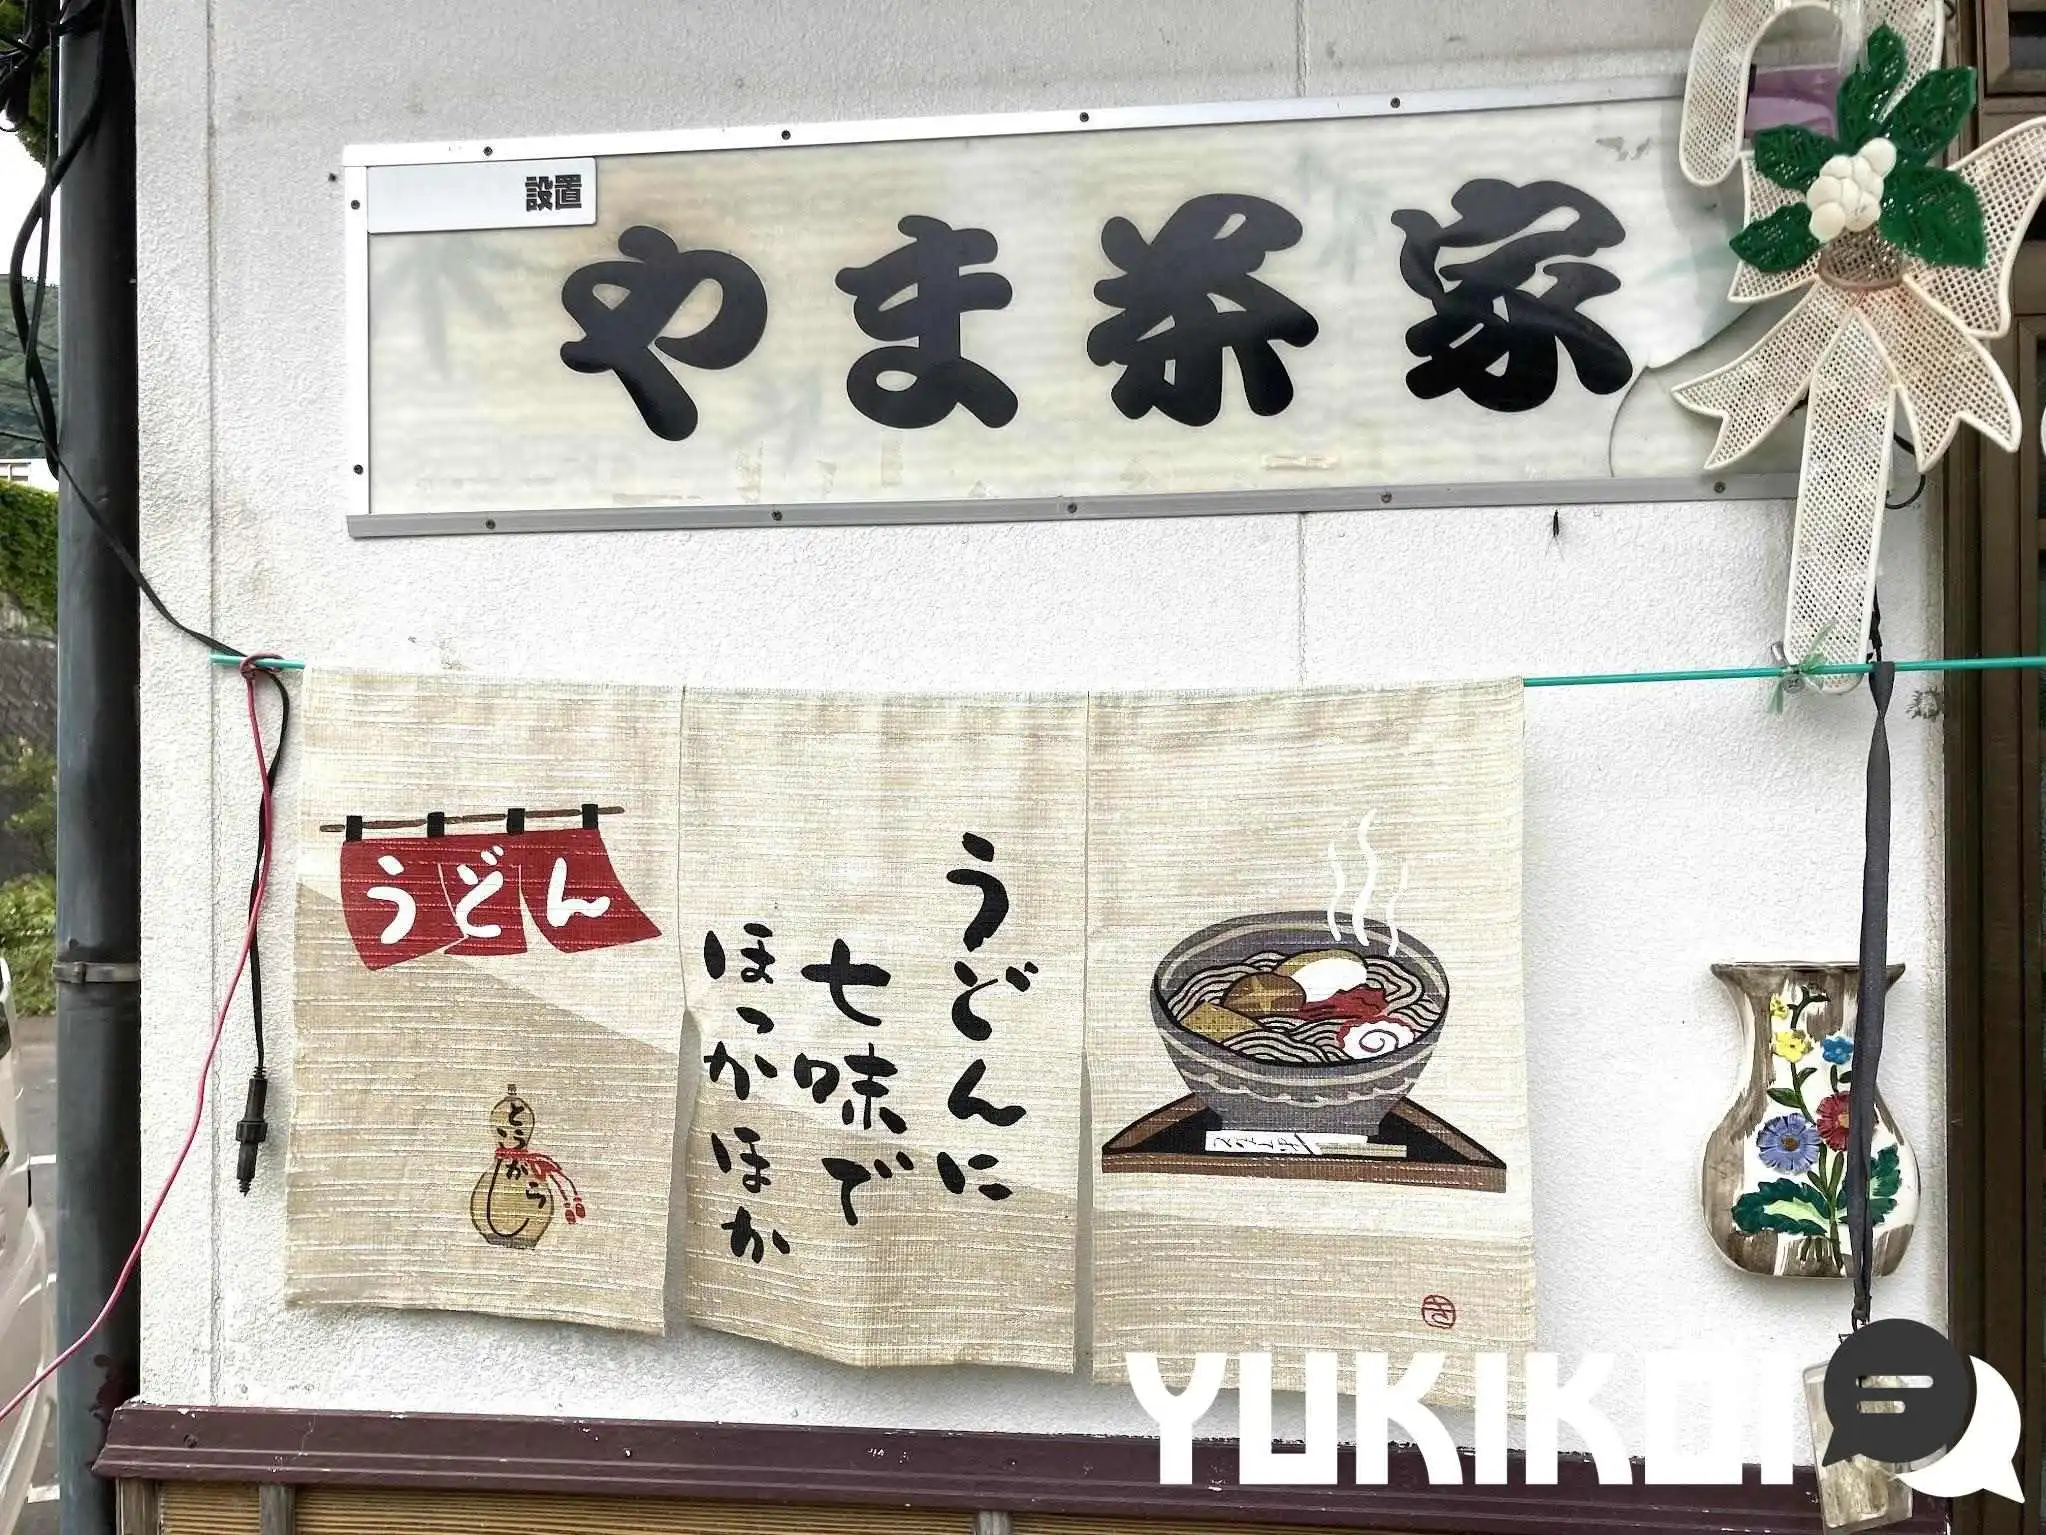 設置
やま茶家
うどん
とうがらし
うどんに
七味で
ほっかほか
YUKIKOI